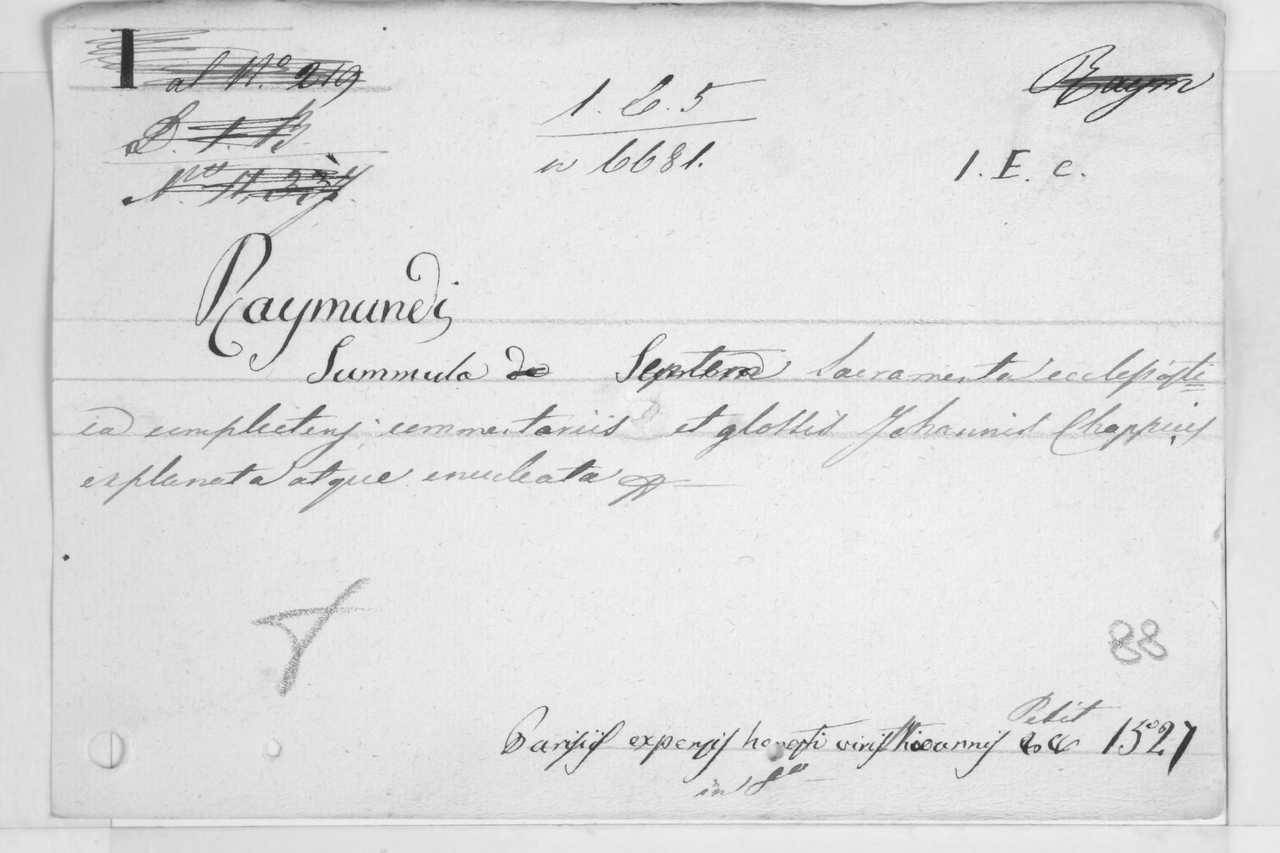 al N.o 219
D. 1. B.
1. E. 5
n 6681.
Raym
1. E. c.
Raymundi
Summula de Septem Sacramenta ecclesiasti=
ca complectens commentariis et glossis Johannis Chappuis
explanata atque enucleata
88
Petit
Parisiis expensis honesti viris Johannis 1527
in 8o